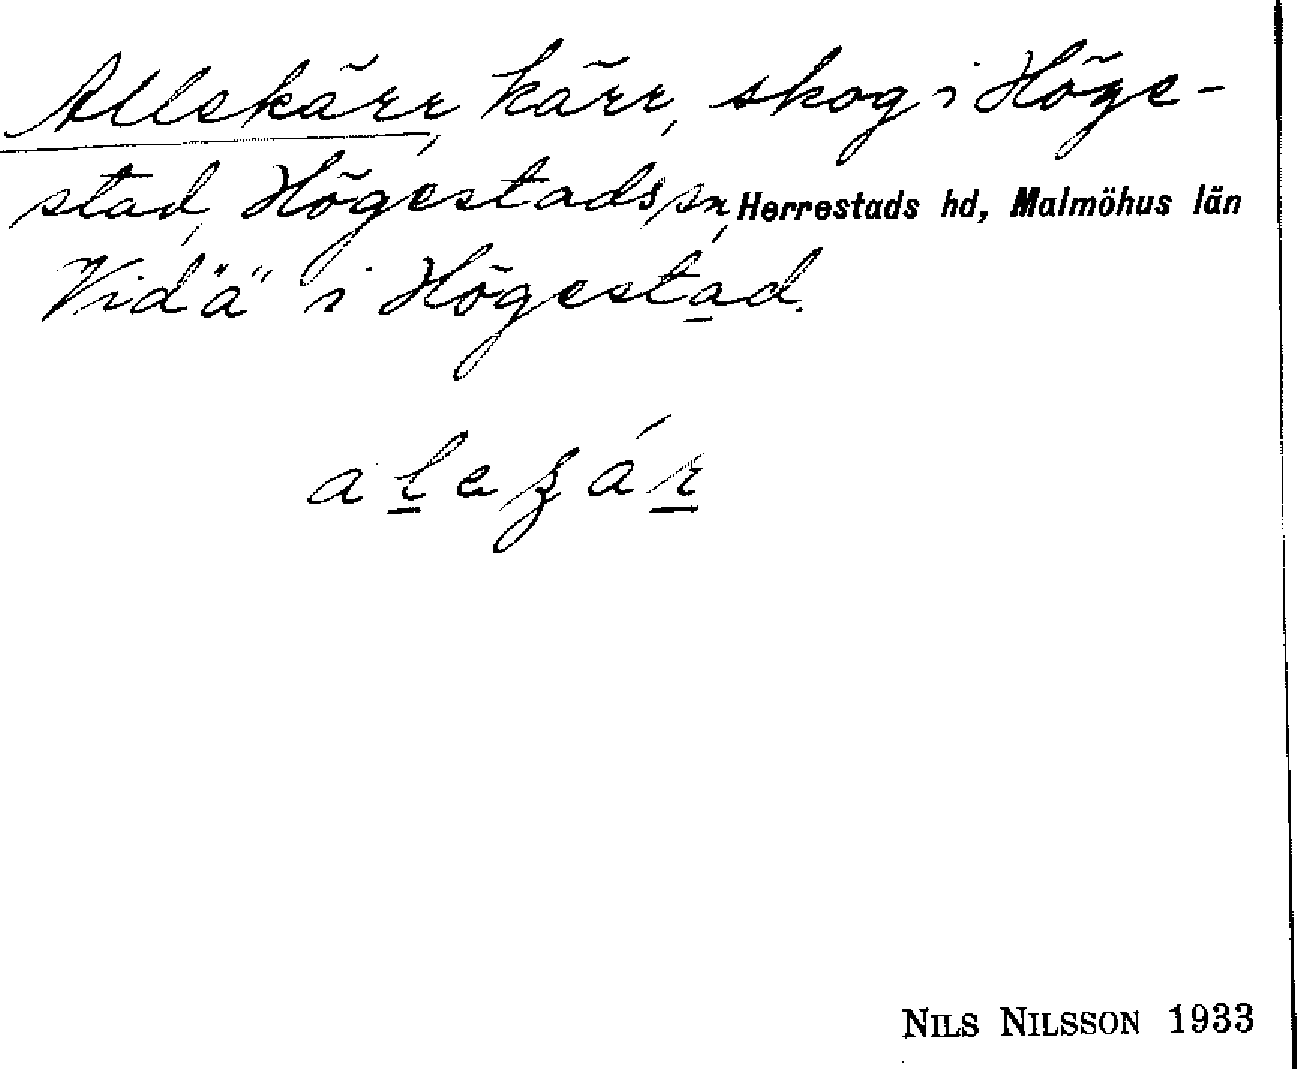 Allekärr, kärr, skog i Höge-
stad, Högestads sn, Herrestads hd, Malmöhus län
Vid "a" i Högestad.
NILS NILSSON 1933